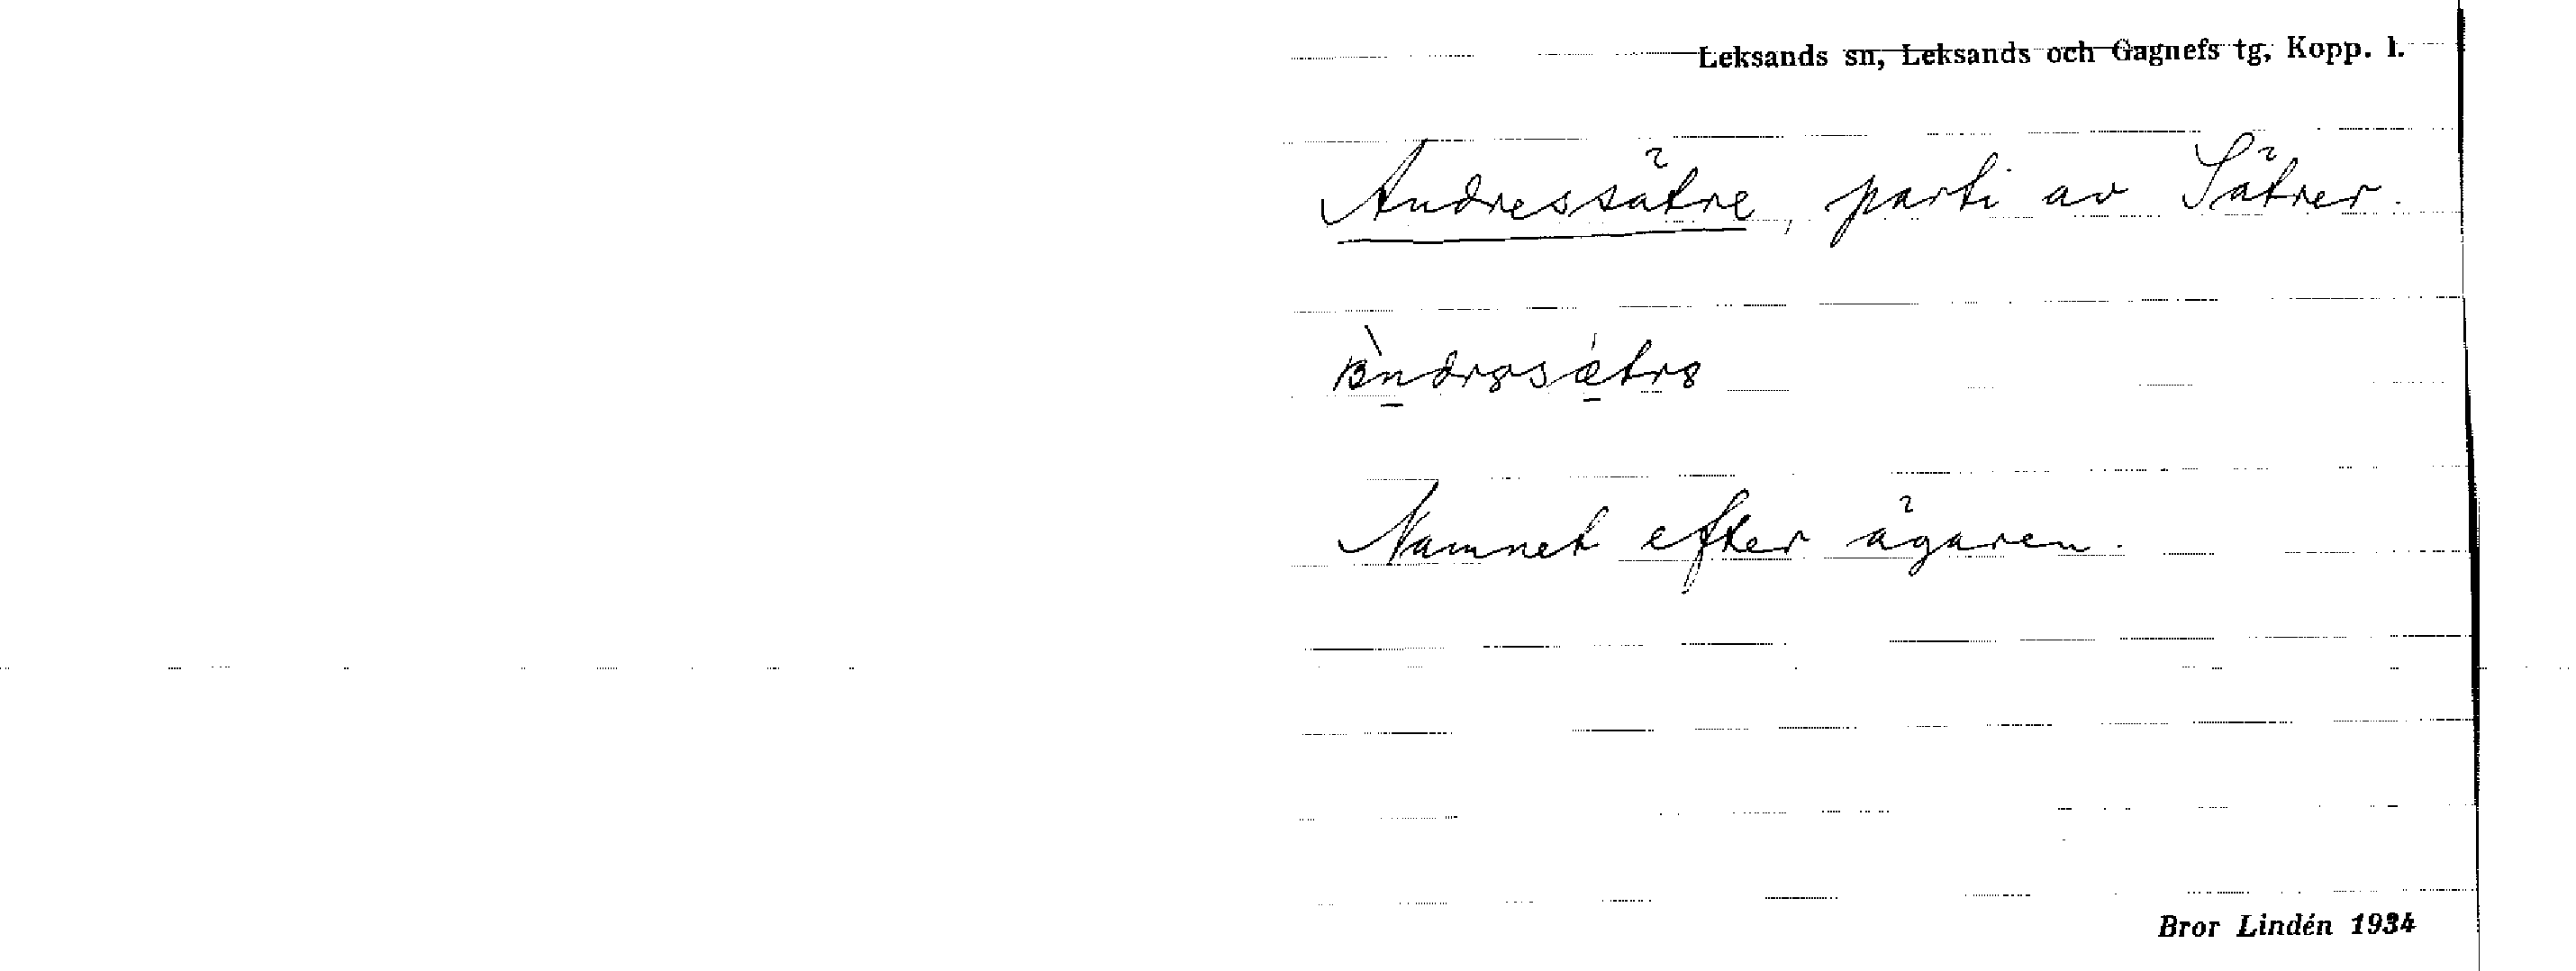 Leksands sn, Leksands och Gagnefs tg, Kopp. l.
Andressätre, parti av Sätrer.
Namnet efter ägaren.
Bror Lindén 1934